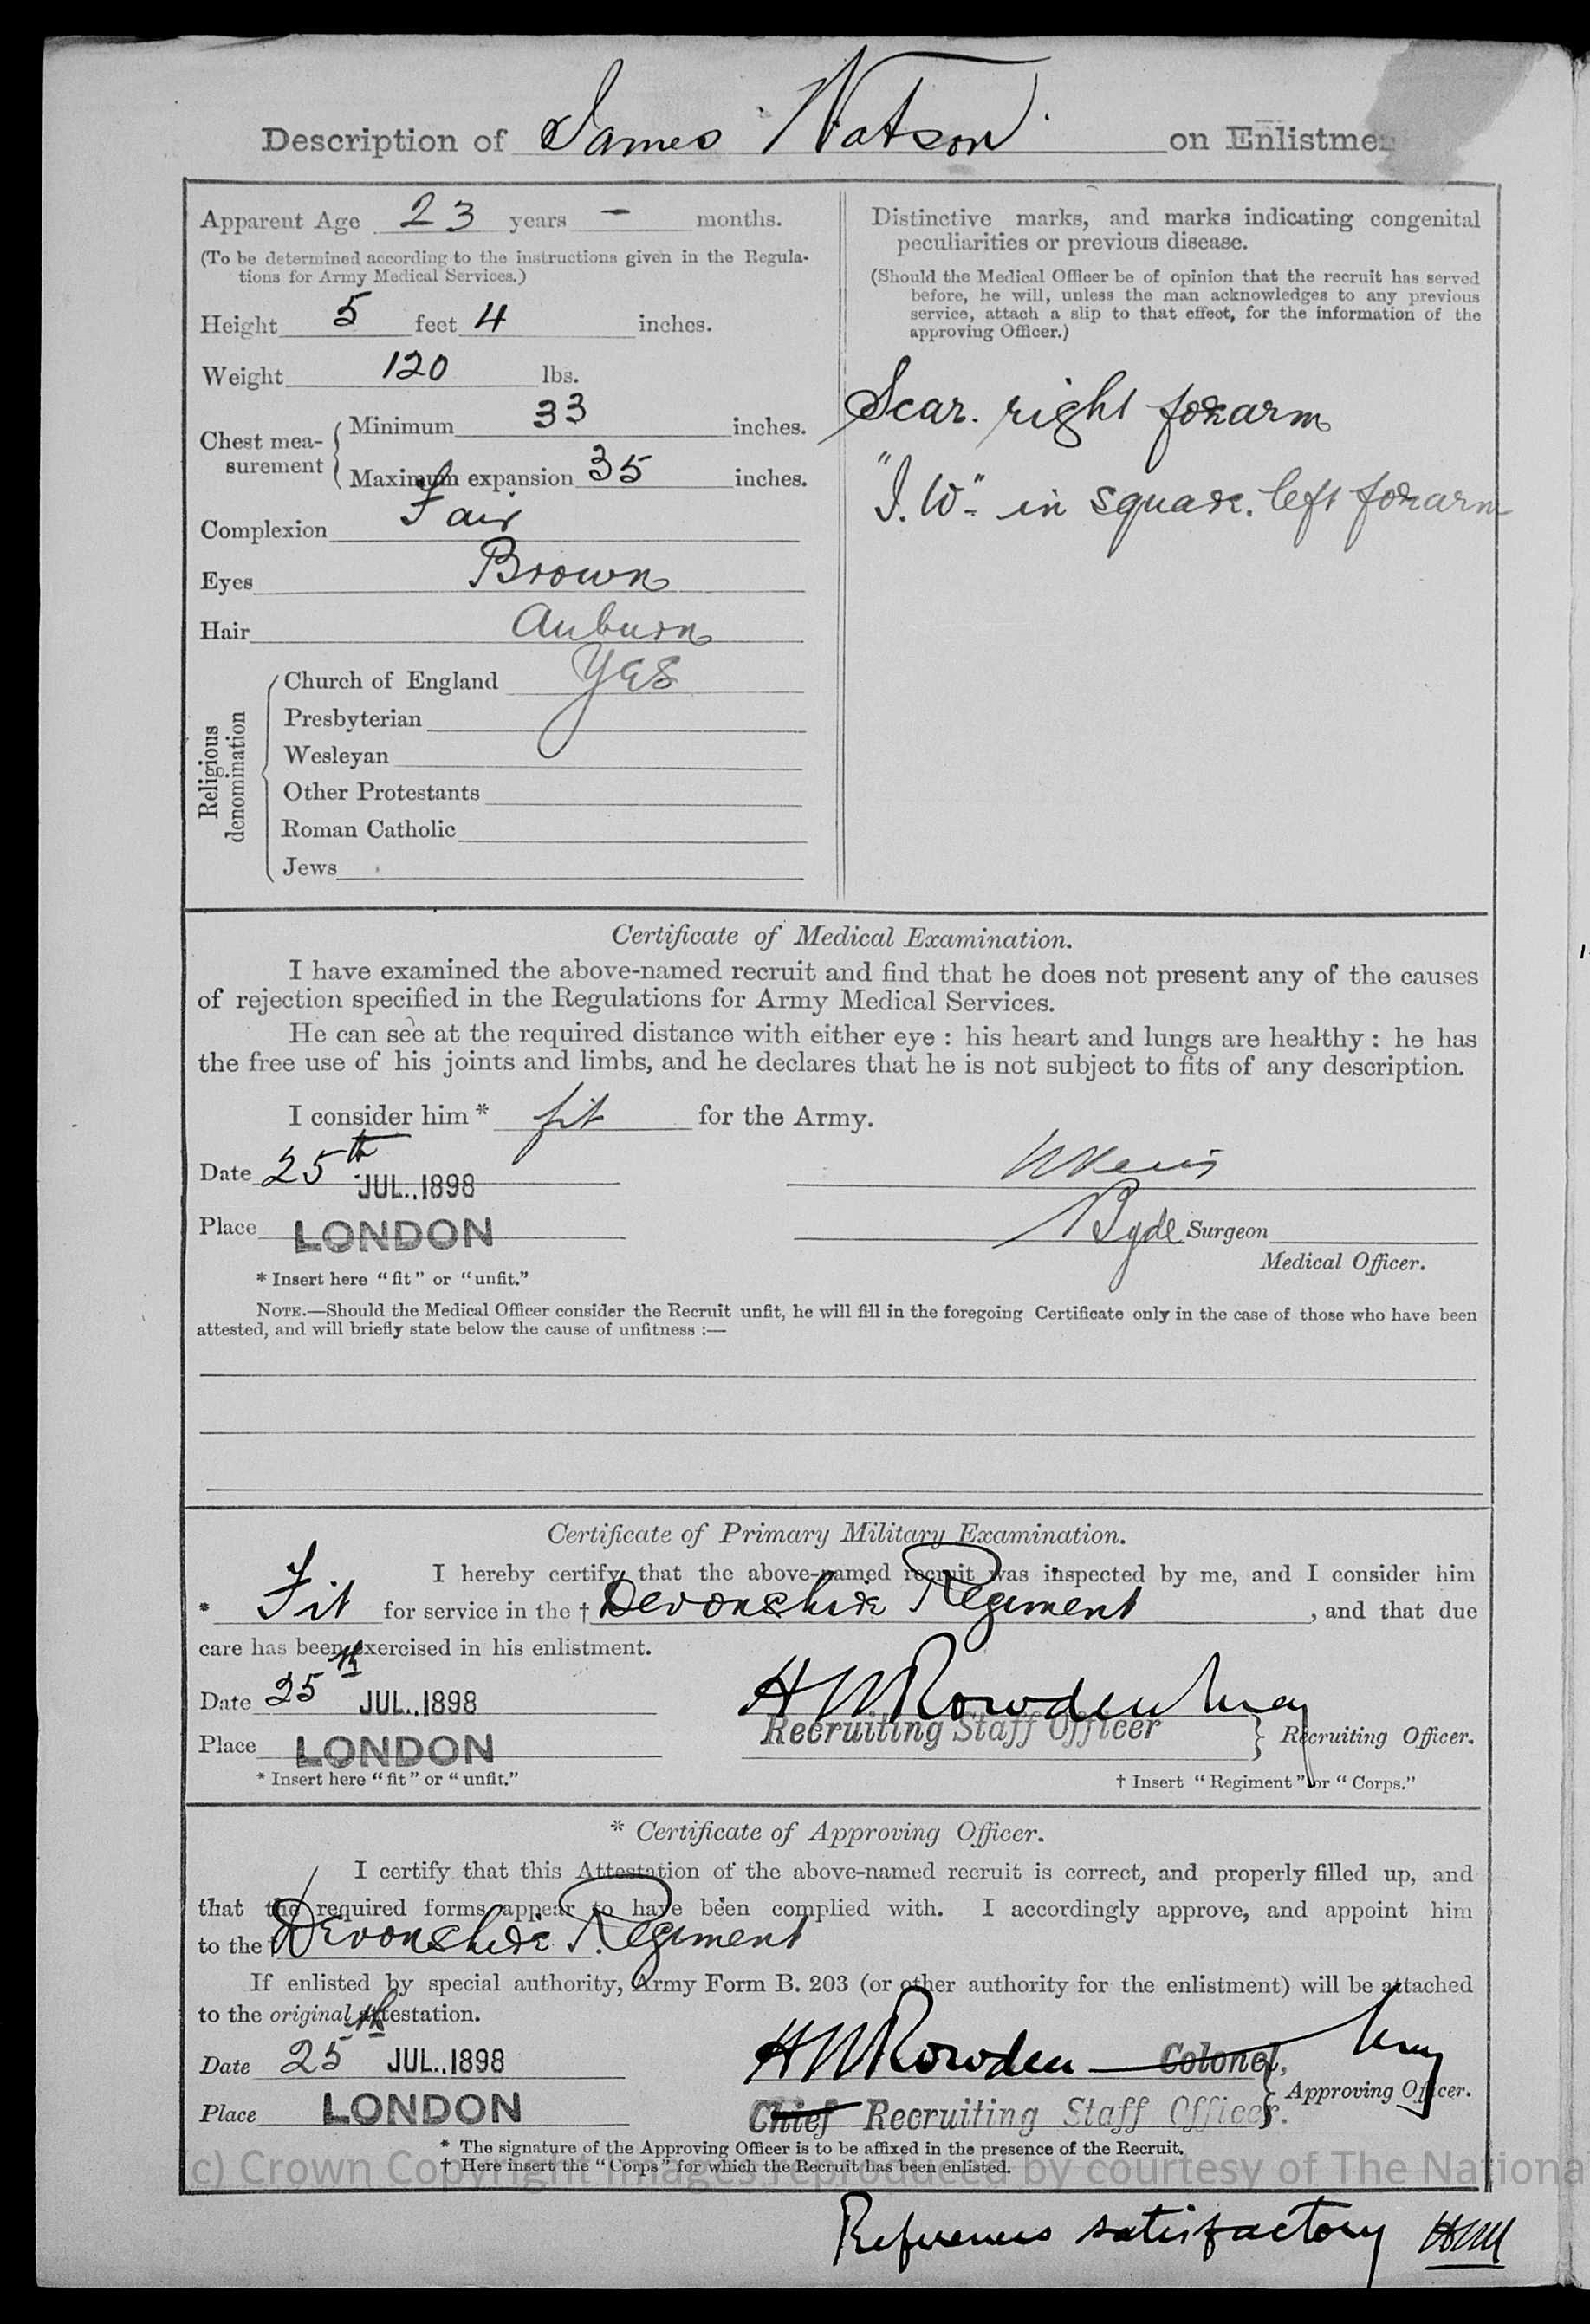 Description of James Watson on Enlistme
Apparent Age 23 years - months.
(To be determined according to the instructions given in the Regula-
tions for Army Medical Services.)
Height 5 feet 4 inches.
Weight 120 lbs.
Chest mea-
surement
Minimum 33 inches.
Maximum expansion 35 inches.
Complexion Fair
Eyes Brown
Hair Auburn
Religious
denomination
Church of England YES
Presbyterian
Wesleyan
Other Protestants
Roman Catholic
Jews
Distinctive marks, and marks indicating congenital
peculiarities or previous disease.
(Should the Medical Officer be of opinion that the recruit has served
before, he will, unless the man acknowledges to any previous
service, attach a slip to that effect, for the information of the
approving Officer.)
Scar. right forearm
"J.W." in square. left forearm
Certificate of Medical Examination.
I have examined the above-named recruit and find that he does not present any of the causes
of rejection specified in the Regulations for Army Medical Services.
He can see at the required distance with either eye : his heart and lungs are healthy : he has
the free use of his joints and limbs, and he declares that he is not subject to fits of any description.
I consider him * fit for the Army.
Date 25th JUL..1898
Place LONDON
Surgeon
Medical Officer.
* Insert here "fit" or "unfit."
NOTE.—Should the Medical Officer consider the Recruit unfit, he will fill in the foregoing Certificate only in the case of those who have been
attested, and will briefly state below the cause of unfitness :—
Certificate of Primary Military Examination.
I hereby certify that the above-named recruit was inspected by me, and I consider him
* Fit for service in the † Devonshire Regiment, and that due
care has been exercised in his enlistment.
Date 25th JUL..1898
Place LONDON
H M Rowden
Recruiting Staff Officer
Recruiting Officer.
* Insert here "fit" or "unfit."
† Insert "Regiment" or "Corps."
* Certificate of Approving Officer.
I certify that this Attestation of the above-named recruit is correct, and properly filled up, and
that the required forms appear to have been complied with. I accordingly approve, and appoint him
to the † Devonshire Regiment
If enlisted by special authority, Army Form B. 203 (or other authority for the enlistment) will be attached
to the original attestation.
Date 25th JUL..1898
Place LONDON
H M Rowden Colonel,
Chief Recruiting Staff Officer.
Approving Officer.
* The signature of the Approving Officer is to be affixed in the presence of the Recruit.
† Here insert the "Corps" for which the Recruit has been enlisted.
(c) Crown Copyright Images reproduced by courtesy of The Nationa
References satisfactory HM